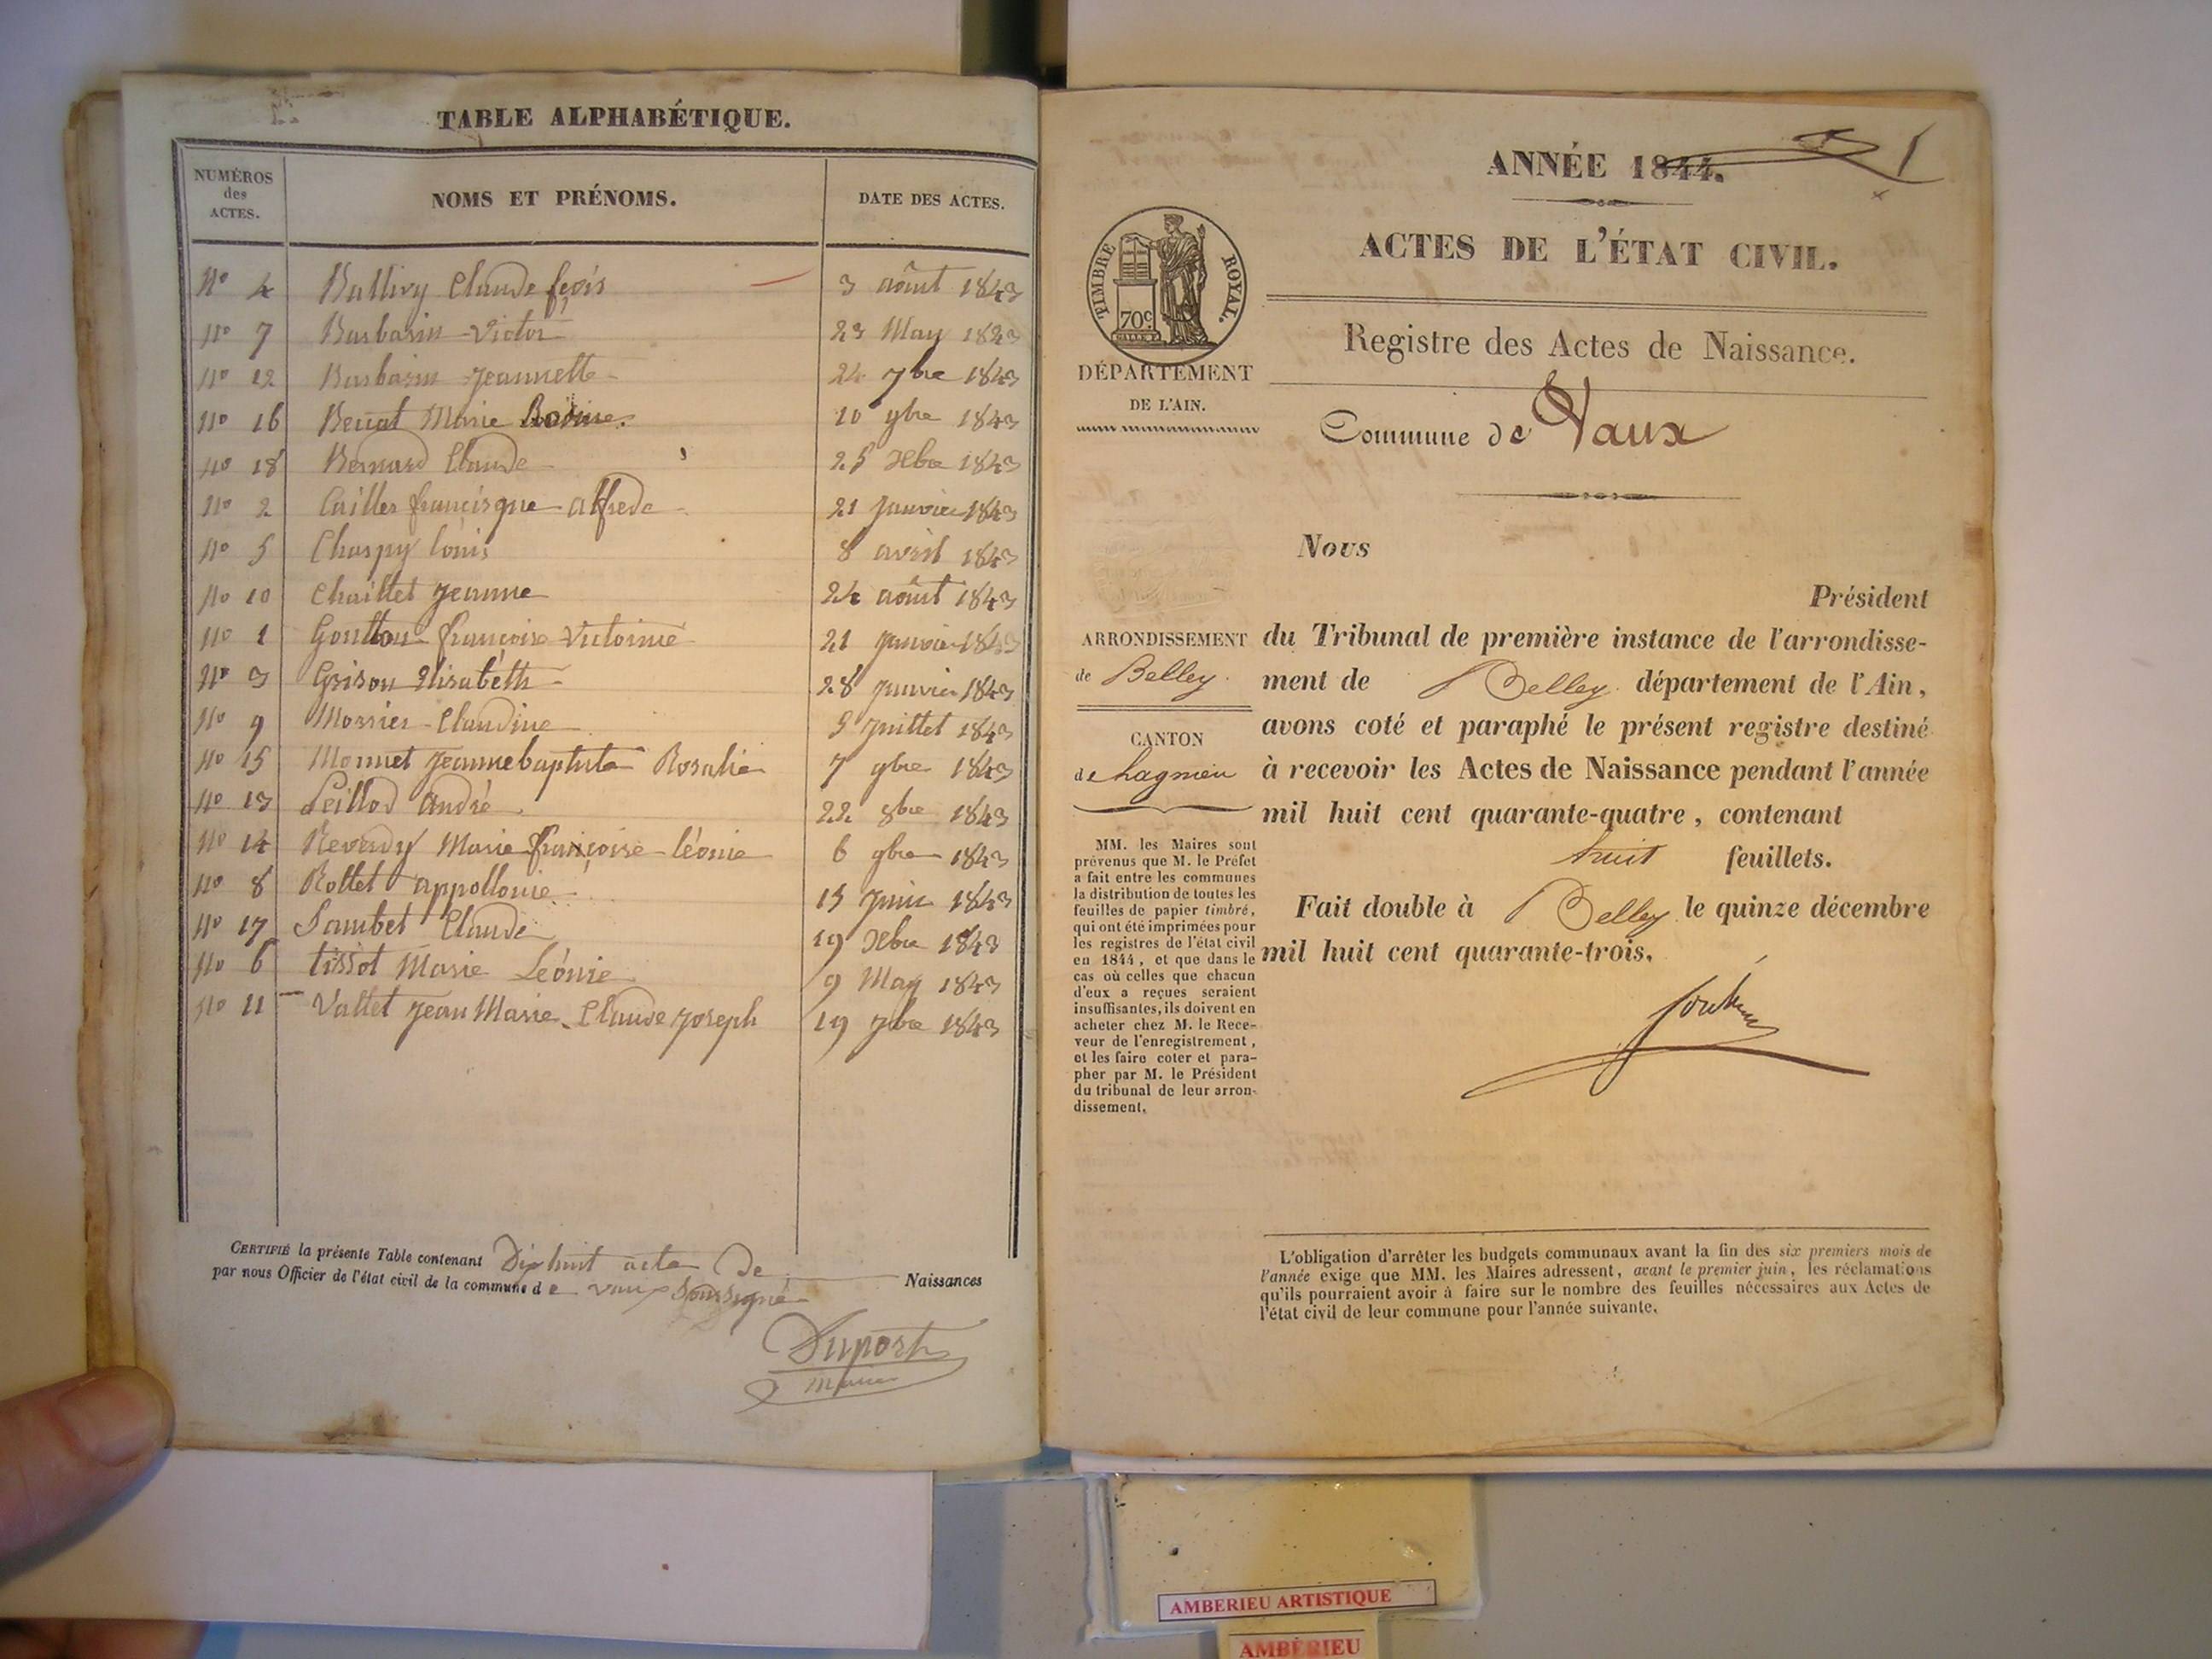 TABLE ALPHABÉTIQUE.
NUMÉROS des ACTES. NOMS ET PRÉNOMS. DATE DES ACTES.
No 4 Ballivy Claude fçois 3 aôut 1843
No 7 Barbarin Victor 23 May 1843
No 12 Barbarin Jeannette 24 7bre 1843
No 16 Marie 10 9bre 1843
No 18 Bernard Claude 25 Xbre 1843
No 2 Cailler françisque alfrede 21 Janvier 1843
No 5 Chaspy louis 8 avril 1843
No 10 Chaillet Jeanne 24 aôut 1843
No 1 Goutton françoise Victoinie 21 Janvier 1843
No 3 Grison Elisabeth 28 Janvier 1843
No 9 Morrier Claudine 5 Juillet 1843
No 15 Monnet Jeannebaptiste Rosalie 7 9bre 1843
No 13 Peillod André 22 8bre 1843
No 14 Reverdy Marie françoise léonie 6 9bre 1843
No 8 Rollet appollonie 15 Juin 1843
No 17 Sambet Claude 19 Xbre 1843
No 6 tissot Marie Léonie 9 May 1843
No 11 Vallet Jean Marie Claude Joseph 19 7bre 1843
CERTIFIÉ la présente Table contenant Dix huit actes De Naissances
par nous Officier de l'état civil de la commune de vaux Soussigné
Duport
Maire
1
ANNÉE 1844.
ACTES DE L'ÉTAT CIVIL.
TIMBRE ROYAL.
70c
Registre des Actes de Naissance.
DÉPARTEMENT
DE L'AIN.
Commune de Vaux
Nous
Président
ARRONDISSEMENT
de Belley.
CANTON
de Lagnieu
MM. les Maires sont
prévenus que M. le Préfet
a fait entre les communes
la distribution de toutes les
feuilles de papier timbré,
qui ont été imprimées pour
les registres de l'état civil
en 1844, et que dans le
cas où celles que chacun
d'eux a reçues seraient
insuffisantes, ils doivent en
acheter chez M. le Rece-
veur de l'enregistrement,
et les faire coter et para-
pher par M. le Président
du tribunal de leur arron-
dissement.
du Tribunal de première instance de l'arrondisse-
ment de Belley département de l'Ain,
avons coté et paraphé le présent registre destiné
à recevoir les Actes de Naissance pendant l'année
mil huit cent quarante-quatre, contenant
huit feuillets.
Fait double à Belley le quinze décembre
mil huit cent quarante-trois.
L'obligation d'arrêter les budgets communaux avant la fin des six premiers mois de
l'année exige que MM. les Maires adressent, avant le premier juin, les réclamations
qu'ils pourraient avoir à faire sur le nombre des feuilles nécessaires aux Actes de
l'état civil de leur commune pour l'année suivante.
AMBERIEU ARTISTIQUE
AMBÉRIEU